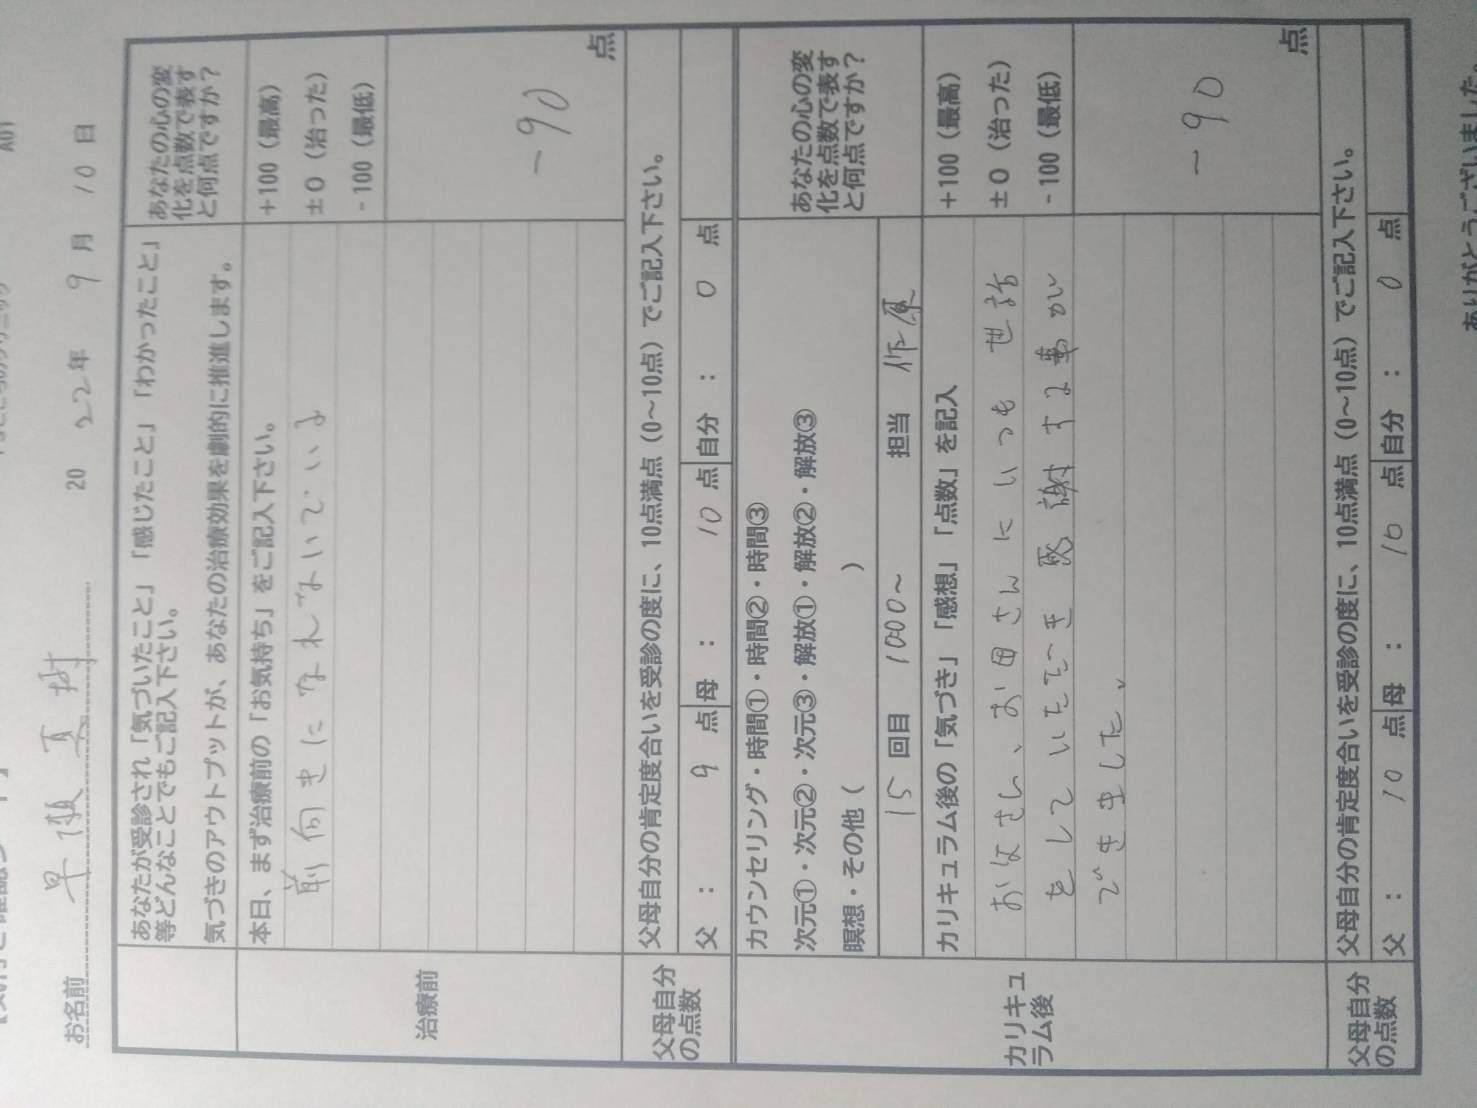 A01
お名前 早瀬 真 20 22年 9月 10日
あなたが受診され「気づいたこと」「感じたこと」「わかったこと」
等どんなことでもご記入下さい。
気づきのアウトプットが、あなたの治療効果を劇的に推進します。
あなたの心の変
化を点数で表す
と何点ですか？
治療前
本日、まず治療前の「お気持ち」をご記入下さい。
前向きになれないでいる
+100（最高）
±0（治った）
-100（最低）
-90 点
父母自分
の点数
父母自分の肯定度合いを受診の度に、10点満点（0～10点）でご記入下さい。
父 ： 9 点 母 ： 10 点 自分 ： 0 点
カウンセリング・時間①・時間②・時間③
次元①・次元②・次元③・解放①・解放②・解放③
瞑想・その他（ ）
15 回目 1000～ 担当
あなたの心の変
化を点数で表す
と何点ですか？
カリキュ
ラム後
カリキュラム後の「気づき」「感想」「点数」を記入
おなさん、お母さんにいつも世話
をしていただき感謝する事が
できました。
+100（最高）
±0（治った）
-100（最低）
-90 点
父母自分
の点数
父母自分の肯定度合いを受診の度に、10点満点（0～10点）でご記入下さい。
父 ： 10 点 母 ： 10 点 自分 ： 0 点
ありがとうございました。